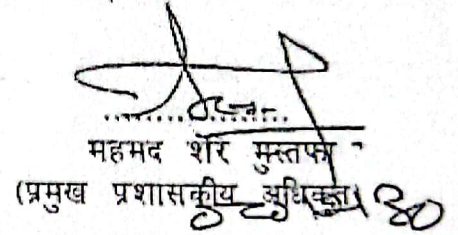 महमद शेर मुस्तफा
(प्रमुख प्रशासकीय अधिकृत)